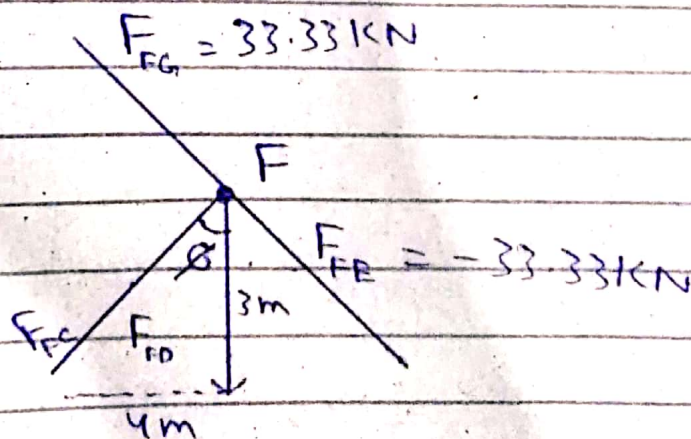 F_FG = 33.33KN
F
Ø
F_FE = -33.33KN
3m
F_FC
F_FD
4m